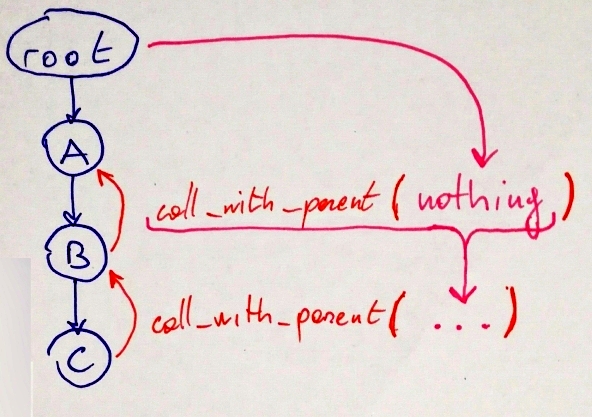 root
A
call_with_parent( nothing )
B
call_with_parent( ... )
C